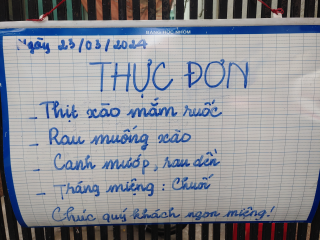 BẢNG HỌC NHÓM
Ngày 23/03/2024
THỰC ĐƠN
- Thịt xào mắm ruốc
- Rau muống xào
- Canh mướp, rau dền
- Tráng miệng : Chuối
Chúc quý khách ngon miệng!